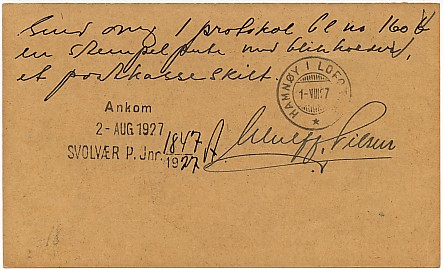 Send omg 1 protokol bl no 160
en stempelpute med blikholder,
et postkasseskilt.
HAMNØY I LOFOT
1-VIII 27
Ankom
2-AUG 1927
SVOLVÆR P. Jnr. 1847
1927